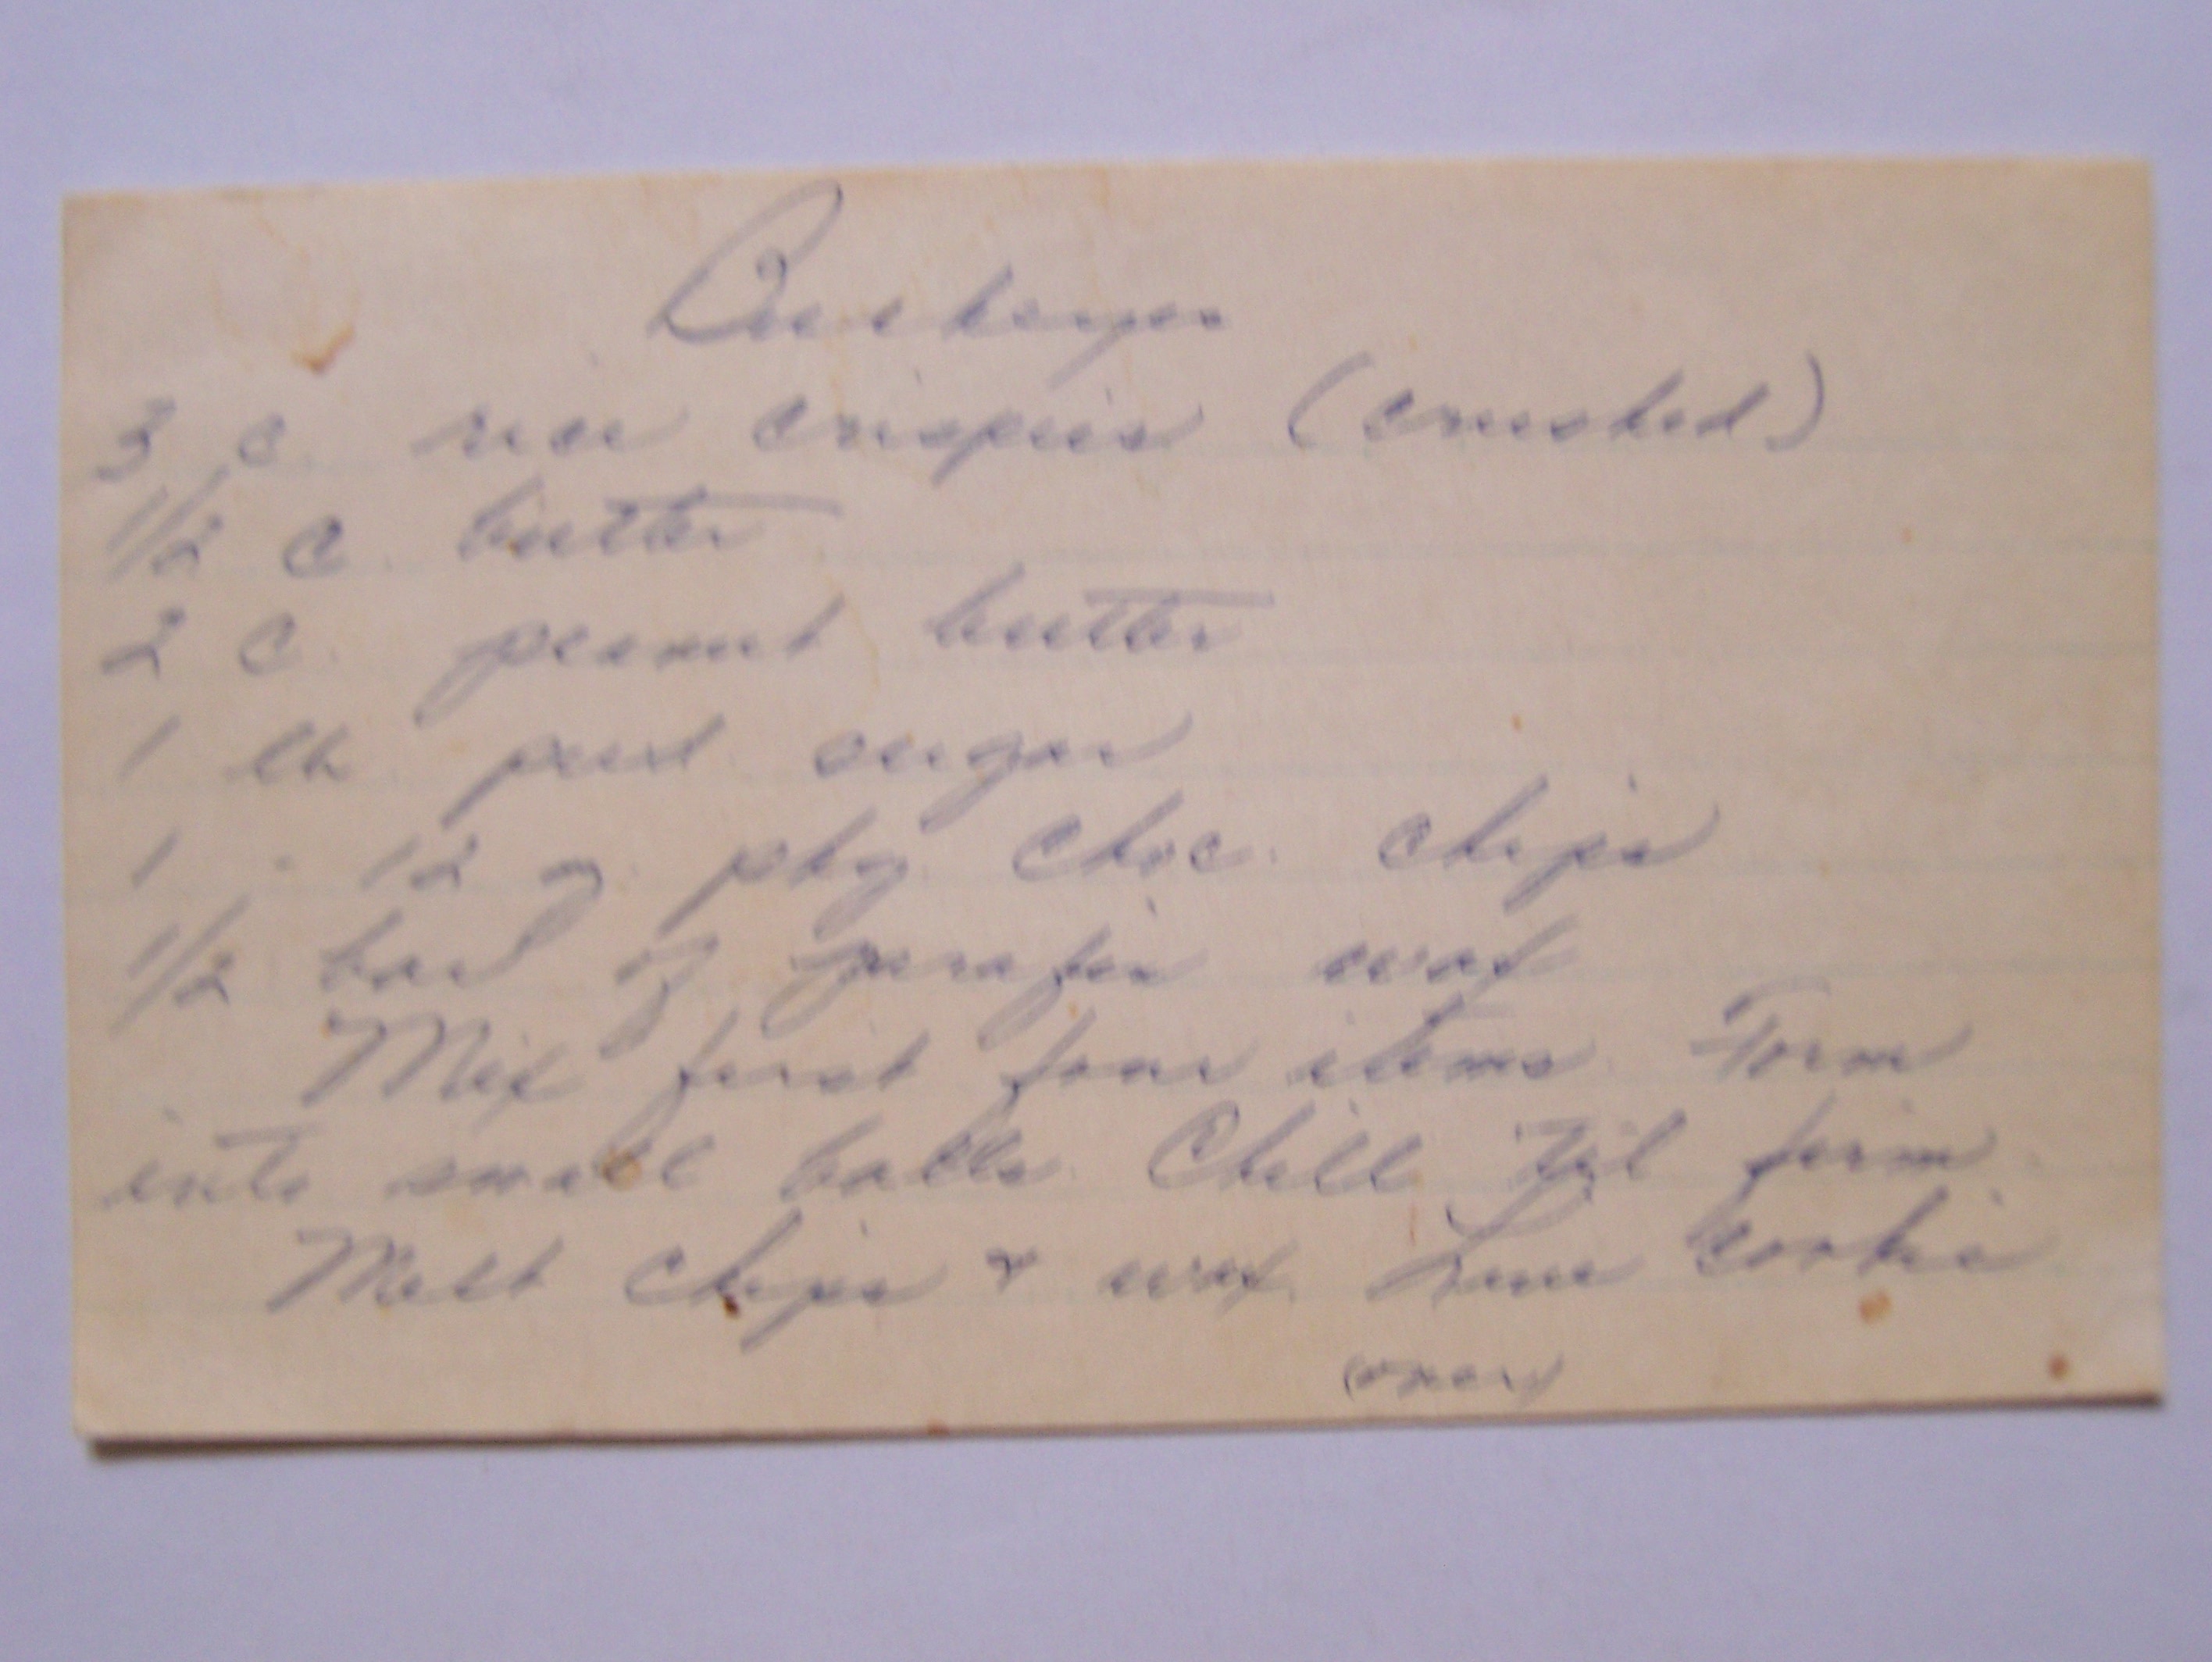 Buckeyes
3 c. rice crispies (crushed)
1/2 c. butter
2 c. peanut butter
1 lb. pwd. sugar
1 - 12 oz. pkg. choc. chips
1/2 bar of parafin wax
Mix first four items. Form
into small balls. Chill 'til firm.
Melt chips & wax. Line cookie
(over)